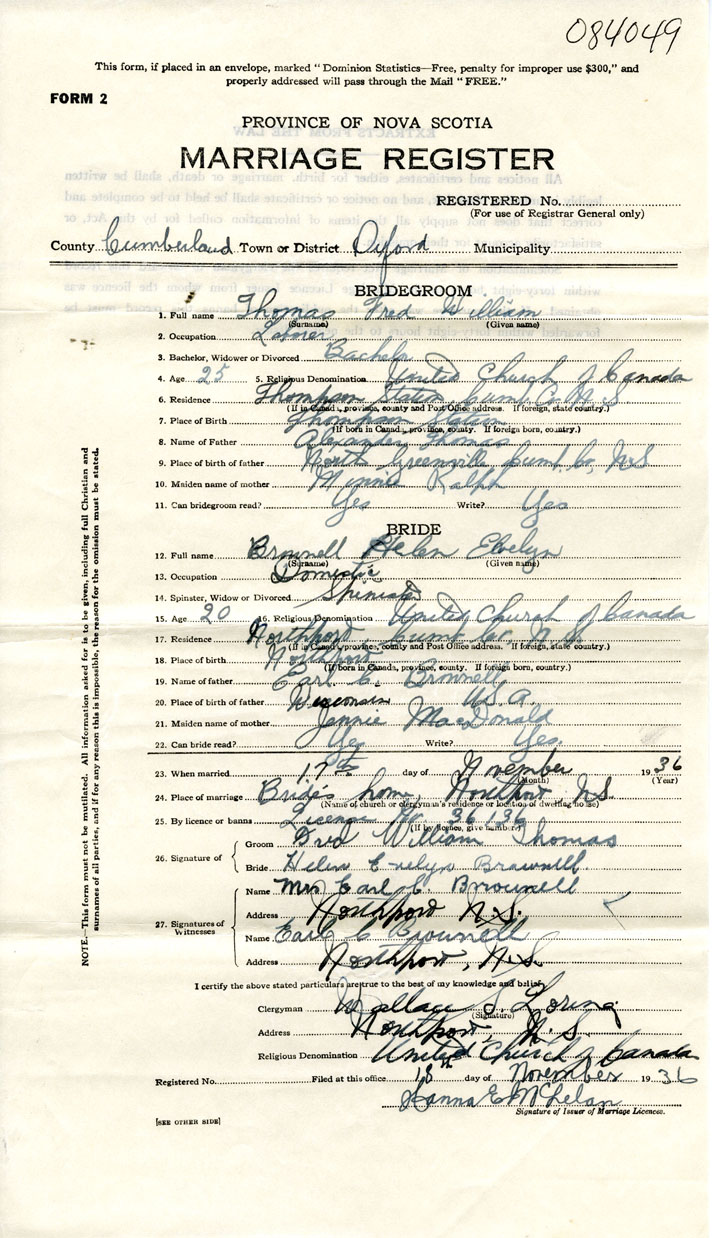 084049
This form, if placed in an envelope, marked "Dominion Statistics—Free, penalty for improper use $300," and
properly addressed will pass through the Mail "FREE."
FORM 2
PROVINCE OF NOVA SCOTIA
MARRIAGE REGISTER
REGISTERED No.
(For use of Registrar General only)
County Cumberland Town or District Oxford Municipality
BRIDEGROOM
1. Full name Thomas Fred William
(Surname) (Given name)
2. Occupation Laborer
3. Bachelor, Widower or Divorced Bachelor
4. Age 25 5. Religious Denomination United Church of Canada
6. Residence Thompson Station Cumb. Co. N.S
(If in Canada, province, county and Post Office address. If foreign, state country.)
7. Place of Birth Thompson Station
(If born in Canada, province, county. If foreign born, country.)
8. Name of Father Alexander Thomas
9. Place of birth of father North Greenville, Cumb. Co, N.S
10. Maiden name of mother Minnie Ralph
11. Can bridegroom read? Yes Write? Yes
BRIDE
12. Full name Brownell Helen Evelyn
(Surname) (Given name)
13. Occupation Domestic
14. Spinster, Widow or Divorced Spinster
15. Age 20 16. Religious Denomination United Church of Canada
17. Residence Northport, Cumb. Co. N.S.
(If in Canada, province, county and Post Office address. If foreign, state country.)
18. Place of birth Northport
(If born in Canada, province, county. If foreign born, country.)
19. Name of father Earl C. Brownell
20. Place of birth of father Wisconsin U.S.A.
21. Maiden name of mother Jennie MacDonald
22. Can bride read? Yes Write? Yes.
23. When married 17th day of November 1936
(Month) (Year)
24. Place of marriage Bride's home, Northport NS
(Name of church or clergyman's residence or location of dwelling house)
25. By licence or banns License No. 36136
(If by licence, give number)
26. Signature of Groom Fred William Thomas
Bride Helen Evelyn Brownell
27. Signatures of Witnesses Name Mrs Earl C. Brownell
Address Northport N.S.
Name Earl C Brownell
Address Northport, N.S.
I certify the above stated particulars are true to the best of my knowledge and belief.
Clergyman Wallace S. Loring
(Signature)
Address Northport, N.S.
Religious Denomination United Church of Canada
Registered No. Filed at this office 18th day of November 1936
Signature of Issuer of Marriage Licences.
[SEE OTHER SIDE]
NOTE.—This form must not be mutilated. All information asked for is to be given, including full Christian and
surnames of all parties, and if for any reason this is impossible, the reason for the omission must be stated.